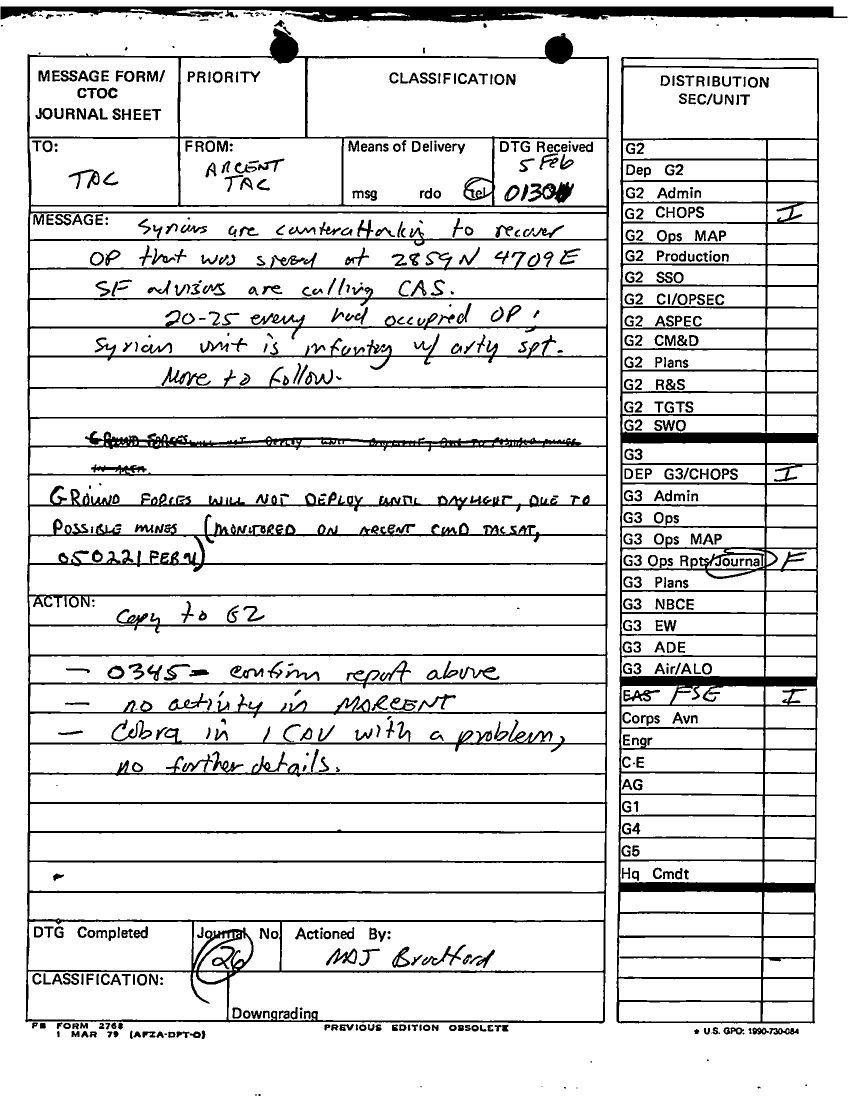 MESSAGE FORM/
CTOC
JOURNAL SHEET
PRIORITY
CLASSIFICATION
TO:
TAC
FROM:
ARCENT
TAC
Means of Delivery
msg rdo tel
DTG Received
5 Feb
0130
MESSAGE: Syrians are counterattacking to recover
OP that was at 2859N 4709E
SF advisors are calling CAS.
20-25 enemy had occupied OP;
Syrian unit is infantry w/ arty spt.
More to follow.
GROUND FORCES WILL NOT DEPLOY UNTIL DAYLIGHT, DUE TO POSSIBLE MINES
IN AREA.
GROUND FORCES WILL NOT DEPLOY UNTIL DAYLIGHT, DUE TO
POSSIBLE MINES (MONITORED ON ARCENT CMD TACSAT,
050221 FEB 91)
ACTION:
Copy to G2
— 0345 – confirm report above
— no activity in MARCENT
— Cobra in 1 CAV with a problem,
no further details.
DTG Completed
Journal No
26
Actioned By:
MAJ Bradford
CLASSIFICATION:
Downgrading
FB FORM 2768
1 MAR 79 (AFZA-DPT-O)
PREVIOUS EDITION OBSOLETE
DISTRIBUTION
SEC/UNIT
G2
Dep G2
G2 Admin
G2 CHOPS I
G2 Ops MAP
G2 Production
G2 SSO
G2 CI/OPSEC
G2 ASPEC
G2 CM&D
G2 Plans
G2 R&S
G2 TGTS
G2 SWO
G3
DEP G3/CHOPS I
G3 Admin
G3 Ops
G3 Ops MAP
G3 Ops Rpts/Journal F
G3 Plans
G3 NBCE
G3 EW
G3 ADE
G3 Air/ALO
EAS FSE I
Corps Avn
Engr
C-E
AG
G1
G4
G5
Hq Cmdt
* U.S. GPO: 1990-730-084